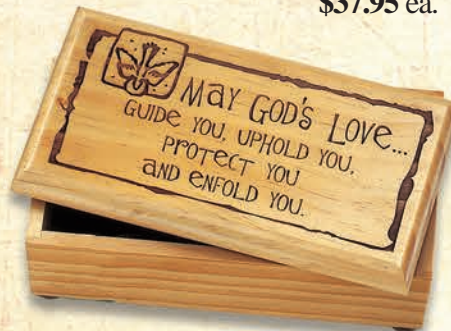 $37.95 ea.
MAY GOD'S LOVE...
GUIDE YOU, UPHOLD YOU,
PROTECT YOU
AND ENFOLD YOU.